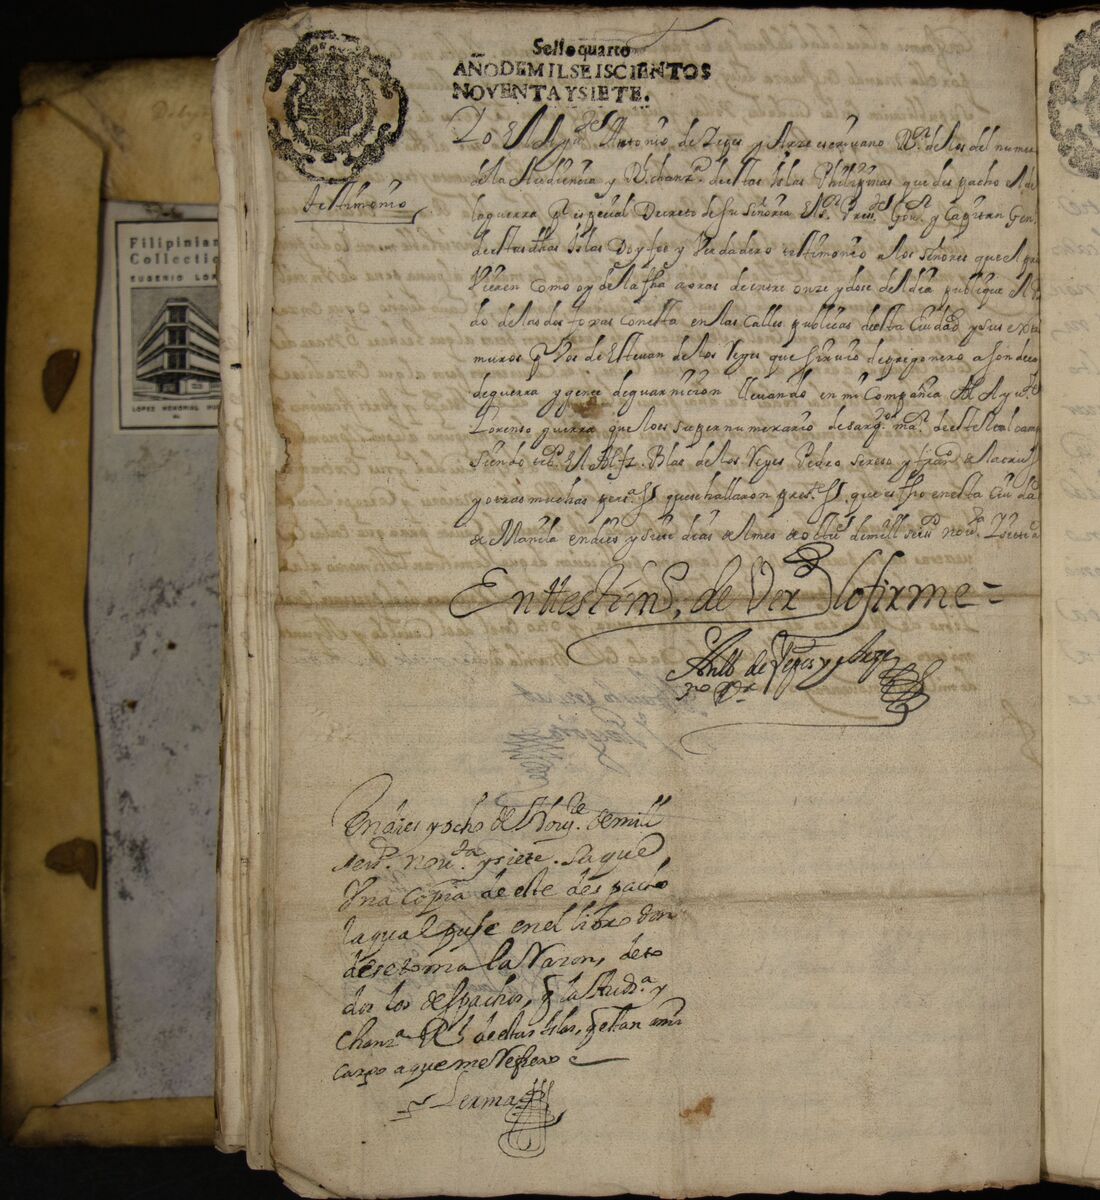 Filipiniana
Collection
EUGENIO LOPEZ
LOPEZ MEMORIAL MUS
Sello quarto
AÑO DE MIL SEISCIENTOS
NOVENTA Y SIETE.
testimonio
Yo El Ayudte Antonio de Yeges y Arze escrivano Rl. de los del numo
de la Audiencia y Rl. chanza. destas Islas Philipinas que despacho el de
la guerra Pr. especial Decreto de su Señoria El Sr. Press. Govr. y Capitan Gen
destas dhas Islas Doy fee y Verdadero testimonio a los Señores que la pre
Vieren Como oy de la fha a oras de entre onze y dose del dia publique el
do de las dos foxas Conesta en las Calles publicas desta Ciudad y sus extra
muros Pr. Vos de Estevan de los Reyes que sirvio de pregonero a son de
de guerra y gente de guarnicion llevando en mi Compañia Al Ayudte.
Lorenso guerra que lo es supernumerario de sargto. mor. deste Real camp
siendo tesos. El Alfz. Blas de los Reyes Pedro y franco. de la crus
y otras muchas persas. que se hallaron press. que es fho en esta Ciuda
de Manila en dies y siete dias del mes de octre de mill seiss. novta. Y siete as
En testimo. de Verd lo firme =
Anto de Yeges y Arze
En dies y ocho de de mill
seiss. novta. y siete. saque
Una copia de este despacho
la qual puse en el libro don
de se toma la Razon, de to
dos los despachos, Pr. la Auda. y
Chanza. Rl. de estas Islas, y estan a mi
cargo a que me Refiero
Lerma